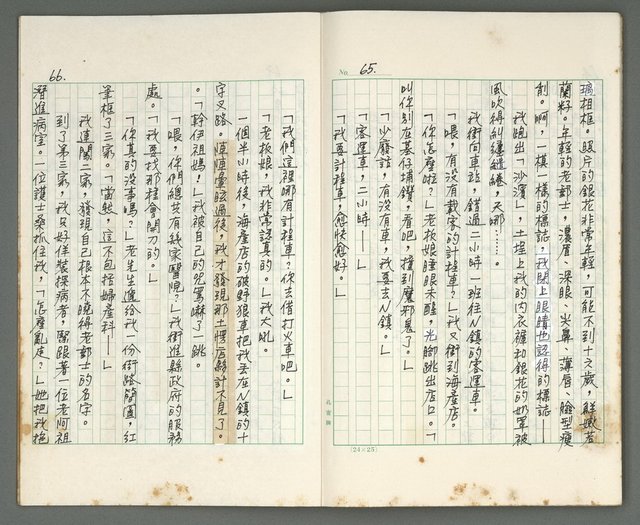 No. 65.
瑪相框。照片的銀花非常年輕，可能不到十六歲，鮮嫩若
蘭籽。年輕的老鄭士，濃眉、深眼、尖鼻、薄唇、臉型瘦
削。啊，一模一樣的標誌，我閉上眼睛也認得的標誌——
風吹得糾纏繾綣，天哪……。
我跑出「沙濱」，土堤上我的內衣褲和銀花的奶罩被
我衝向車站，錯過二小時一班往N鎮的客運車。
「喂，有沒有載客的計程車？」我又衝到海產店。
「你怎麼啦？」老板娘睡眼未醒，光腳跳出店口。「
叫你別在墓仔埔鑽，看吧，撞到魔邪鬼了。」
「少廢話，有沒有車，我要去N鎮。」
「客運車，二小時——」
「我要計程車，愈快愈好。」
(24×25)
66.
「我們這裡哪有計程車？你去借打火車吧。」
「老板娘，我非常認真的。」我大吼。
一個半小時後，海產店的破野狼車把我丟在N鎮的十
字叉路。陣陣暈眩過後，我才發現那土愣店夥計不見了。
「幹伊祖媽，」我被自己的咒罵嚇了一跳。
「喂，你們總共有幾家醫院？」我衝進縣政府的服務
處。「我要找那種會開刀的。」
「你真的沒事嗎？」老先生遞給我一份街路簡圖，紅
筆框了三家。「當然，這不包括婦產科——」
我連闖二家，發現自己根本不曉得老鄭士的名字。
到了第三家，我只好佯裝探病者，緊跟著一位老阿祖
潛進病室。一位護士桑抓住我，「怎麼亂走？」她把我拖